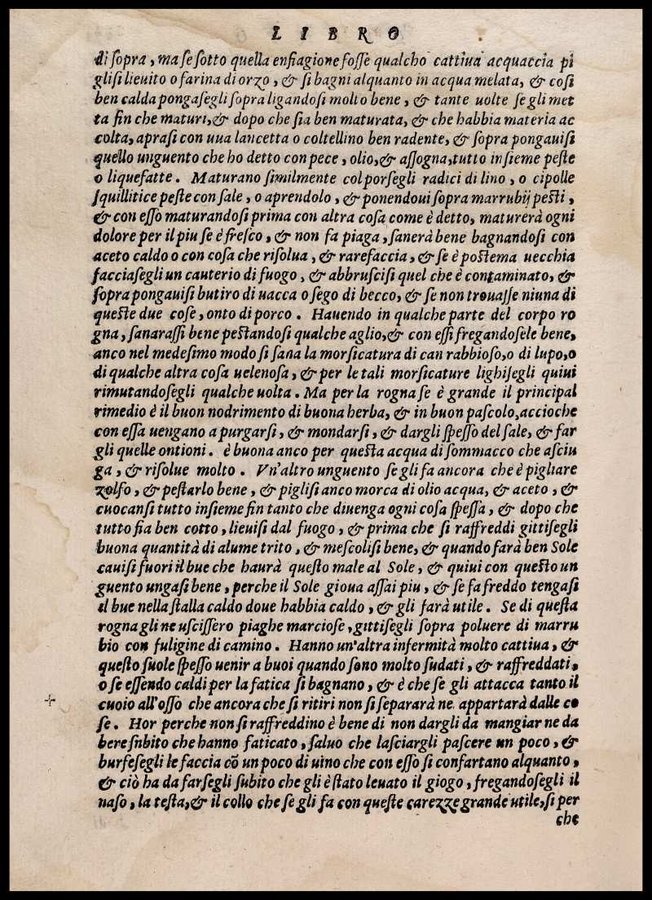 LIBRO
di sopra, ma se sotto quella enfiagione fosse qualcho cattiua acquaccia pi
glisi lieuito o farina di orzo, & si bagni alquanto in acqua melata, & cosi
ben calda pongasegli sopra ligandosi molto bene, & tante uolte se gli met
ta fin che maturi, & dopo che sia ben maturata, & che habbia materia ac
colta, aprasi con una lancetta o coltellino ben radente, & sopra pongauisi
quello unguento che ho detto con pece, olio, & assogna, tutto insieme peste
o liquefatte. Maturano similmente col porsegli radici di lino, o cipolle
squillitice peste con sale, o aprendolo, & ponendoui sopra marrubij pesti,
& con esso maturandosi prima con altra cosa come è detto, maturerà ogni
dolore per il piu se è fresco, & non fa piaga, sanerà bene bagnandosi con
aceto caldo o con cosa che risolua, & rarefaccia, & se è postema uecchia
facciasegli un cauterio di fuogo, & abbruscisi quel che è contaminato, &
sopra pongauisi butiro di uacca o sego di becco, & se non trouasse niuna di
queste due cose, onto di porco. Hauendo in qualche parte del corpo ro
gna, sanarassi bene pestandosi qualche aglio, & con essi fregandosele bene,
anco nel medesimo modo si sana la morsicatura di can rabbioso, o di lupo, o
di qualche altra cosa uelenosa, & per le tali morsicature lighisegli quiui
rimutandosegli qualche uolta. Ma per la rogna se è grande il principal
rimedio è il buon nodrimento di buona herba, & in buon pascolo, accioche
con essa uengano a purgarsi, & mondarsi, & dargli spesso del sale, & far
gli quelle ontioni. è buona anco per questa acqua di sommacco che asciu
ga, & risolue molto. Vn'altro unguento se gli fa ancora che è pigliare
zolfo, & pestarlo bene, & piglisi anco morca di olio acqua, & aceto, &
cuocansi tutto insieme fin tanto che diuenga ogni cosa spessa, & dopo che
tutto fia ben cotto, lieuisi dal fuogo, & prima che si raffreddi gittisegli
buona quantità di alume trito, & mescolisi bene, & quando farà ben Sole
cauisi fuori il bue che haurà questo male al Sole, & quiui con questo un
guento ungasi bene, perche il Sole gioua assai piu, & se fa freddo tengasi
il bue nella stalla caldo doue habbia caldo, & gli farà utile. Se di questa
rogna gli ne uscissero piaghe marciose, gittisegli sopra poluere di marru
bio con fuligine di camino. Hanno un'altra infermità molto cattiua, &
questo suole spesso uenir a buoi quando sono molto sudati, & raffreddati,
o se essendo caldi per la fatica si bagnano, & è che se gli attacca tanto il
cuoio all'osso che ancora che si ritiri non si separarà ne appartarà dalle co
se. Hor perche non si raffreddino è bene di non dargli da mangiar ne da
bere subito che hanno faticato, saluo che lasciargli pascere un poco, &
burfesegli le faccia cō un poco di uino che con esso si confortano alquanto,
& ciò ha da farsegli subito che gli è stato leuato il giogo, fregandosegli il
naso, la testa, & il collo che se gli fa con queste carezze grande utile, si per
che